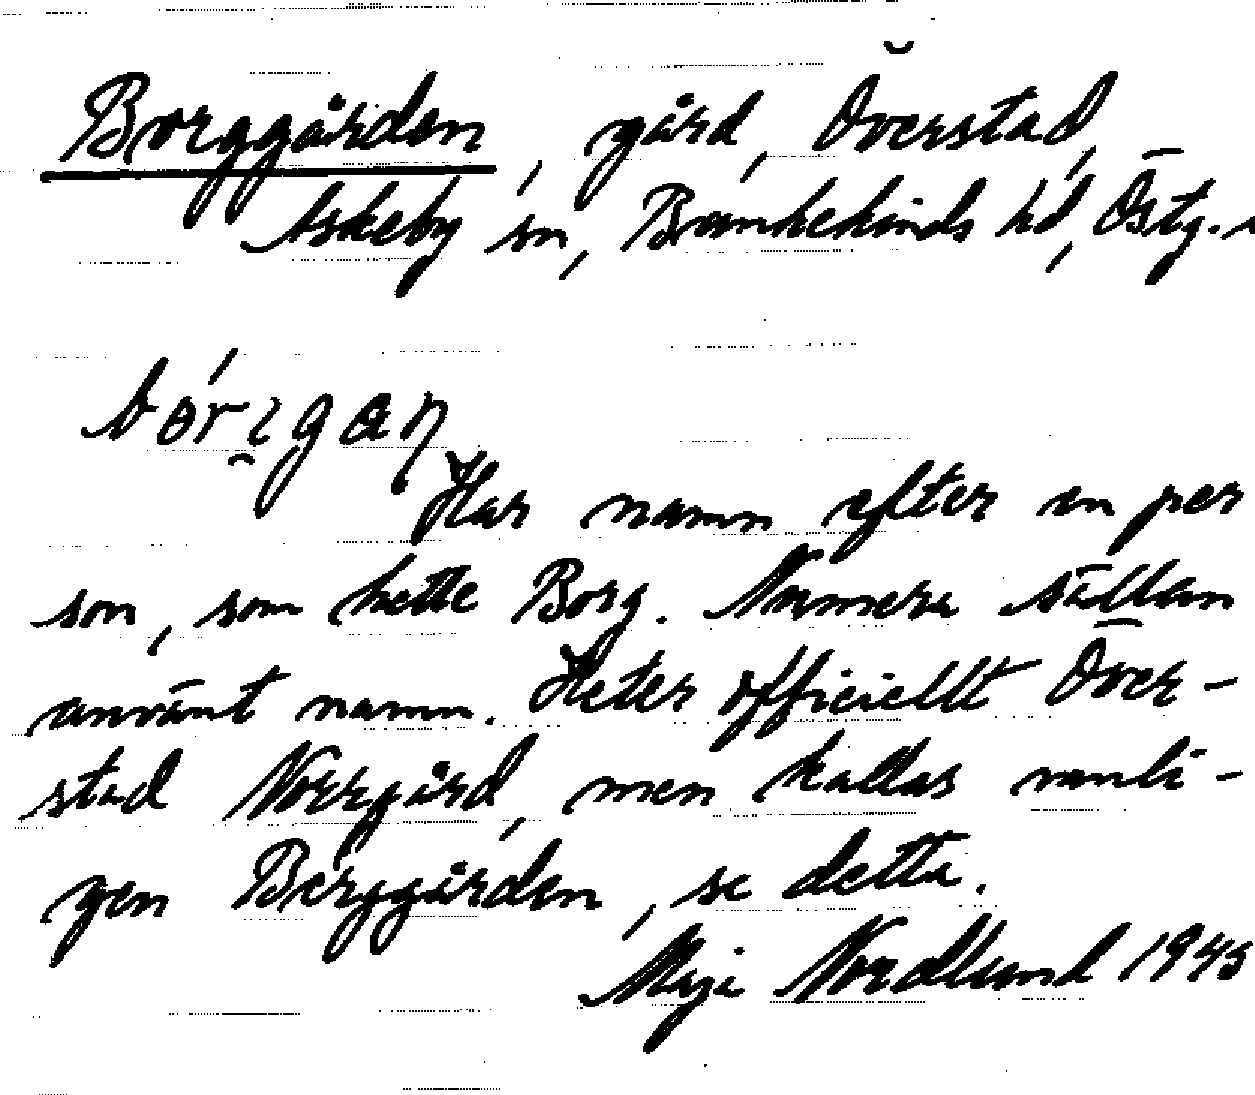 Borggården, gård, Överstad,
Askeby sn, Bankekinds hd, Östg.
Har namn efter en per
son, som hette Borg. Numera sällan
använt namn. Heter officiellt Över-
stad Norrgård, men kallas vanli-
gen Berggården, se detta.
Maja Nordlund 1945